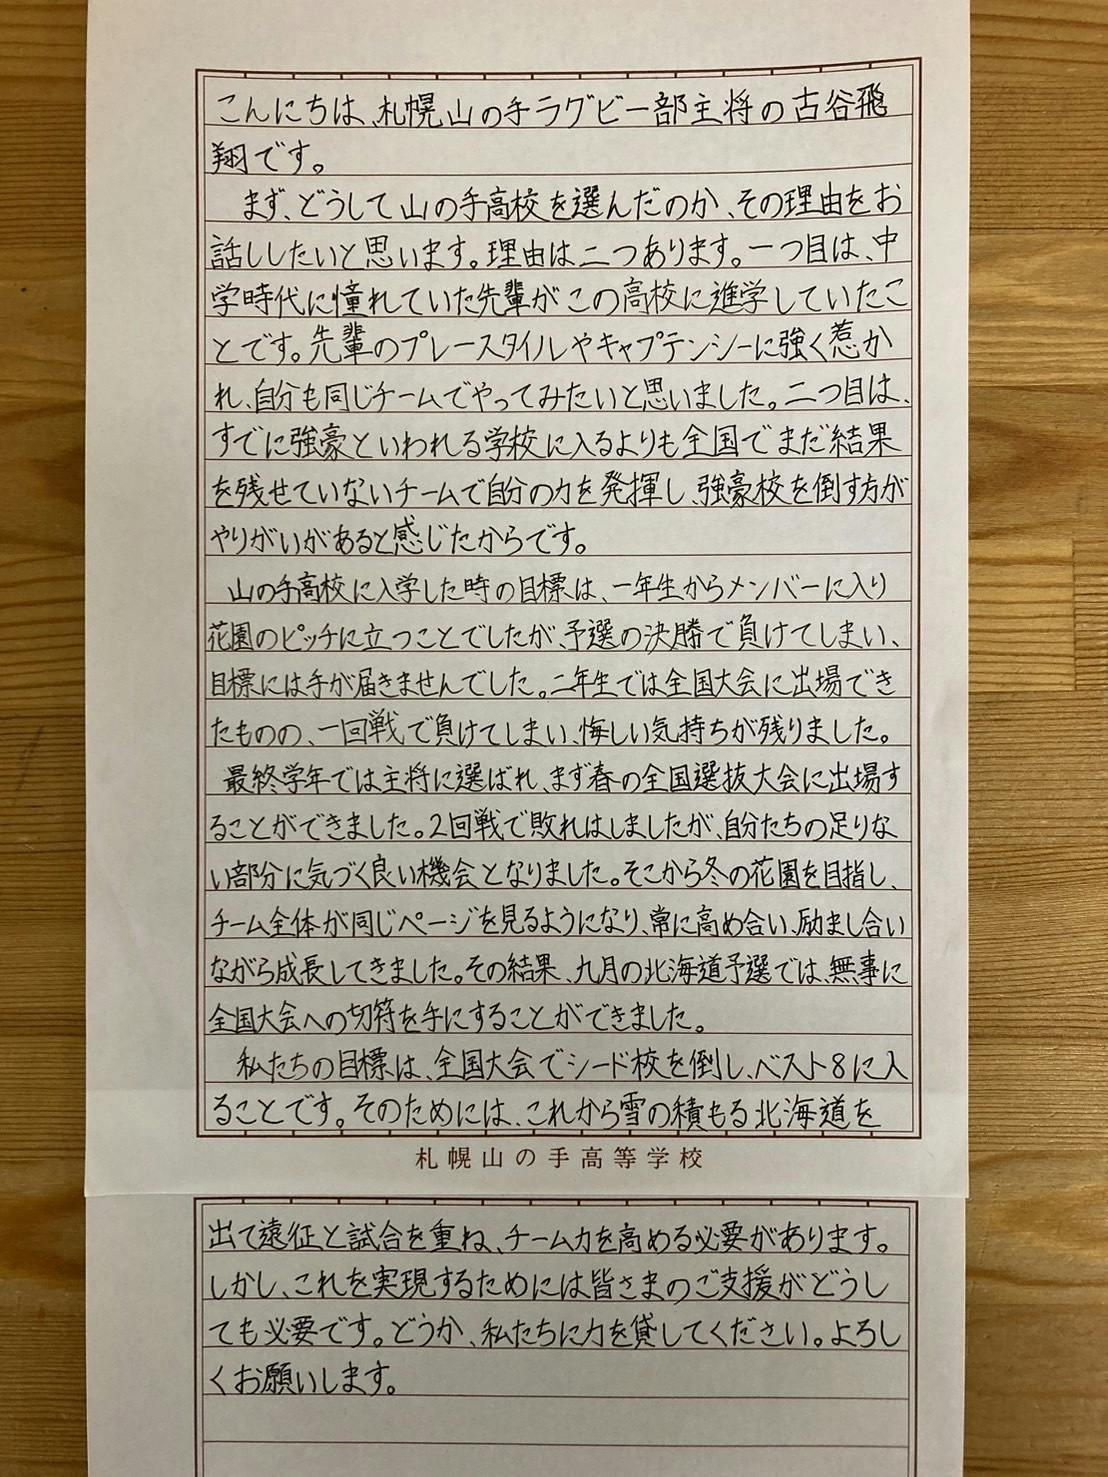 こんにちは、札幌山の手ラグビー部主将の古谷飛
翔です。
まず、どうして山の手高校を選んだのか、その理由をお
話ししたいと思います。理由は二つあります。一つ目は、中
学時代に憧れていた先輩がこの高校に進学していたこ
とです。先輩のプレースタイルやキャプテンシーに強く惹か
れ、自分も同じチームでやってみたいと思いました。二つ目は、
すでに強豪といわれる学校に入るよりも全国でまだ結果
を残せていないチームで自分の力を発揮し、強豪校を倒す方が
やりがいがあると感じたからです。
山の手高校に入学した時の目標は、一年生からメンバーに入り
花園のピッチに立つことでしたが、予選の決勝で負けてしまい、
目標には手が届きませんでした。二年生では全国大会に出場でき
たものの、一回戦で負けてしまい、悔しい気持ちが残りました。
最終学年では主将に選ばれ、まず春の全国選抜大会に出場す
ることができました。2回戦で敗れはしましたが、自分たちの足りな
い部分に気づく良い機会となりました。そこから冬の花園を目指し、
チーム全体が同じページを見るようになり、常に高め合い、励まし合い
ながら成長してきました。その結果、九月の北海道予選では、無事に
全国大会への切符を手にすることができました。
私たちの目標は、全国大会でシード校を倒し、ベスト8に入
ることです。そのためには、これから雪の積もる北海道を
札幌山の手高等学校
出て遠征と試合を重ね、チーム力を高める必要があります。
しかし、これを実現するためには皆さまのご支援がどうし
ても必要です。どうか、私たちに力を貸してください。よろし
くお願いします。